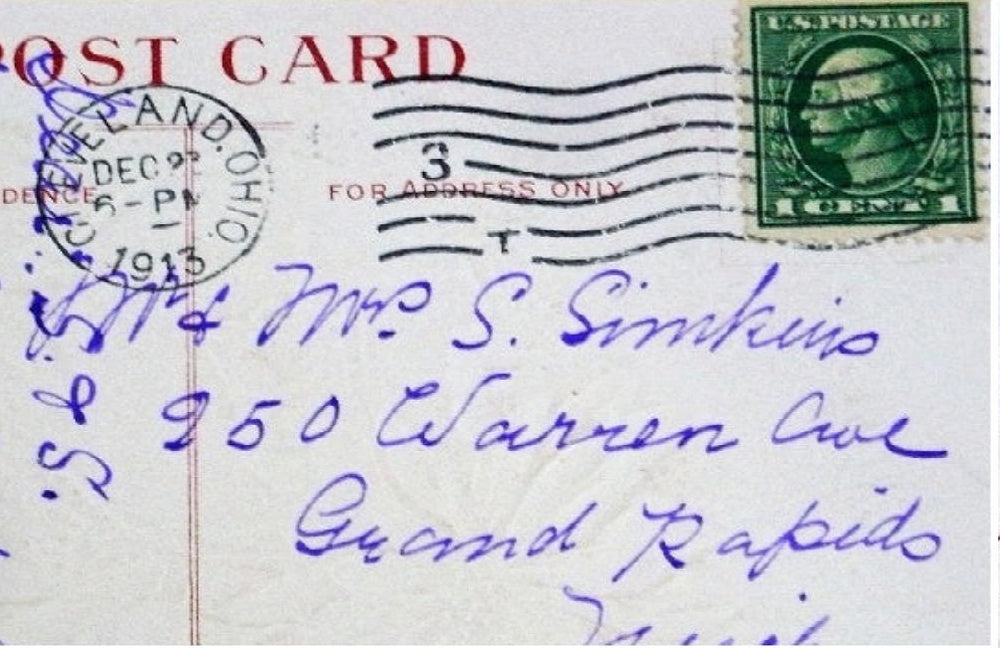 POST CARD
CLEVELAND, OHIO.
DEC 22
5-PM
1913
3
T
U.S. POSTAGE
1 CENT 1
DENCE
FOR ADDRESS ONLY
Mr & Mrs. S. Simkins
250 Warren Ave
Grand Rapids
Mich